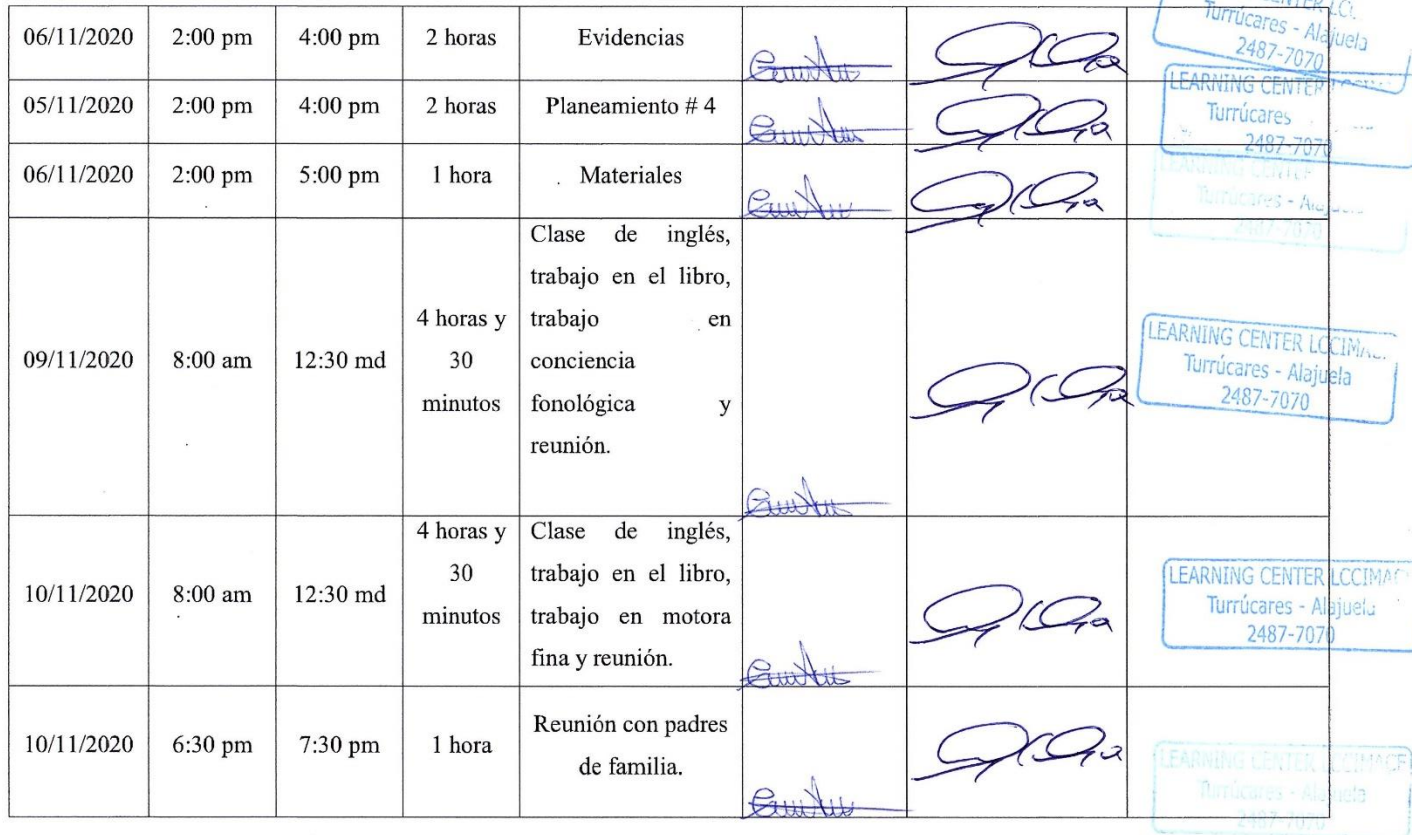 06/11/2020 2:00 pm 4:00 pm 2 horas Evidencias
Turrúcares - Alajuela
2487-7070
05/11/2020 2:00 pm 4:00 pm 2 horas Planeamiento # 4
LEARNING CENTER
Turrúcares
2487-7070
06/11/2020 2:00 pm 5:00 pm 1 hora Materiales
LEARNING CENTER
Turrúcares -
2487-7070
09/11/2020 8:00 am 12:30 md
4 horas y
30
minutos
Clase de inglés,
trabajo en el libro,
trabajo en
conciencia
fonológica y
reunión.
LEARNING CENTER
Turrúcares - Alajuela
2487-7070
10/11/2020 8:00 am 12:30 md
4 horas y
30
minutos
Clase de inglés,
trabajo en el libro,
trabajo en motora
fina y reunión.
LEARNING CENTER
Turrúcares - Alajuela
2487-7070
10/11/2020 6:30 pm 7:30 pm 1 hora
Reunión con padres
de familia.
LEARNING CENTER LCCIMACF
Turrúcares - Alajuela
2487-7070